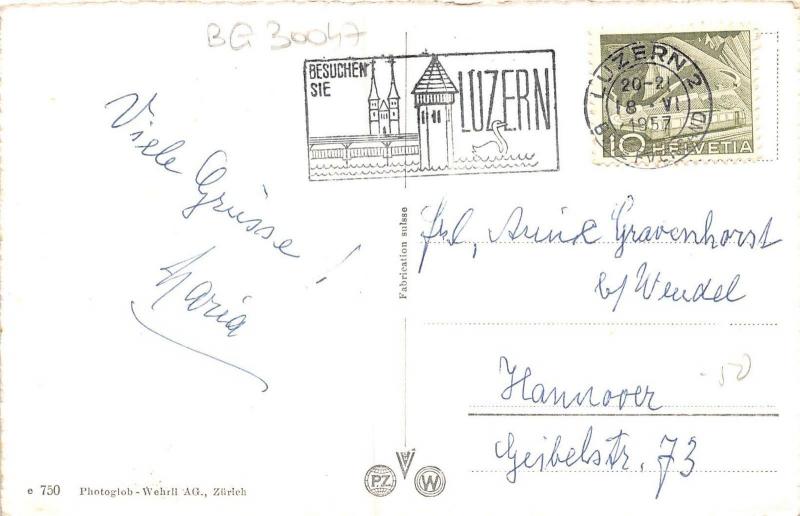 BG 30047
BESUCHEN
SIE
LUZERN
LUZERN 2
20-2
18 VI
1957
10 HELVETIA
Viele Grüsse!
Maria
Fabrication suisse
Frl. Gravenhorst
b/ Wendel
Hannover
-50
Geibelstr. 73
e 750 Photoglob-Wehrli AG., Zürich
P.Z. W